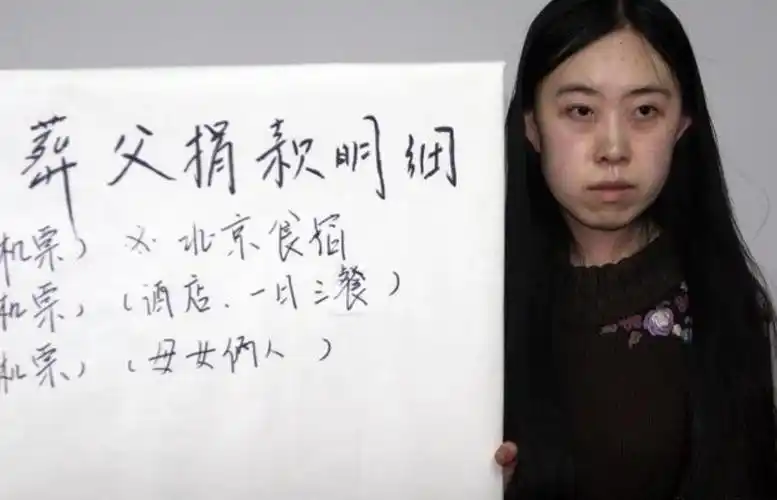 葬父捐款明细
机票) ※北京食宿
机票) (酒店、一日三餐)
机票) (母女俩人)